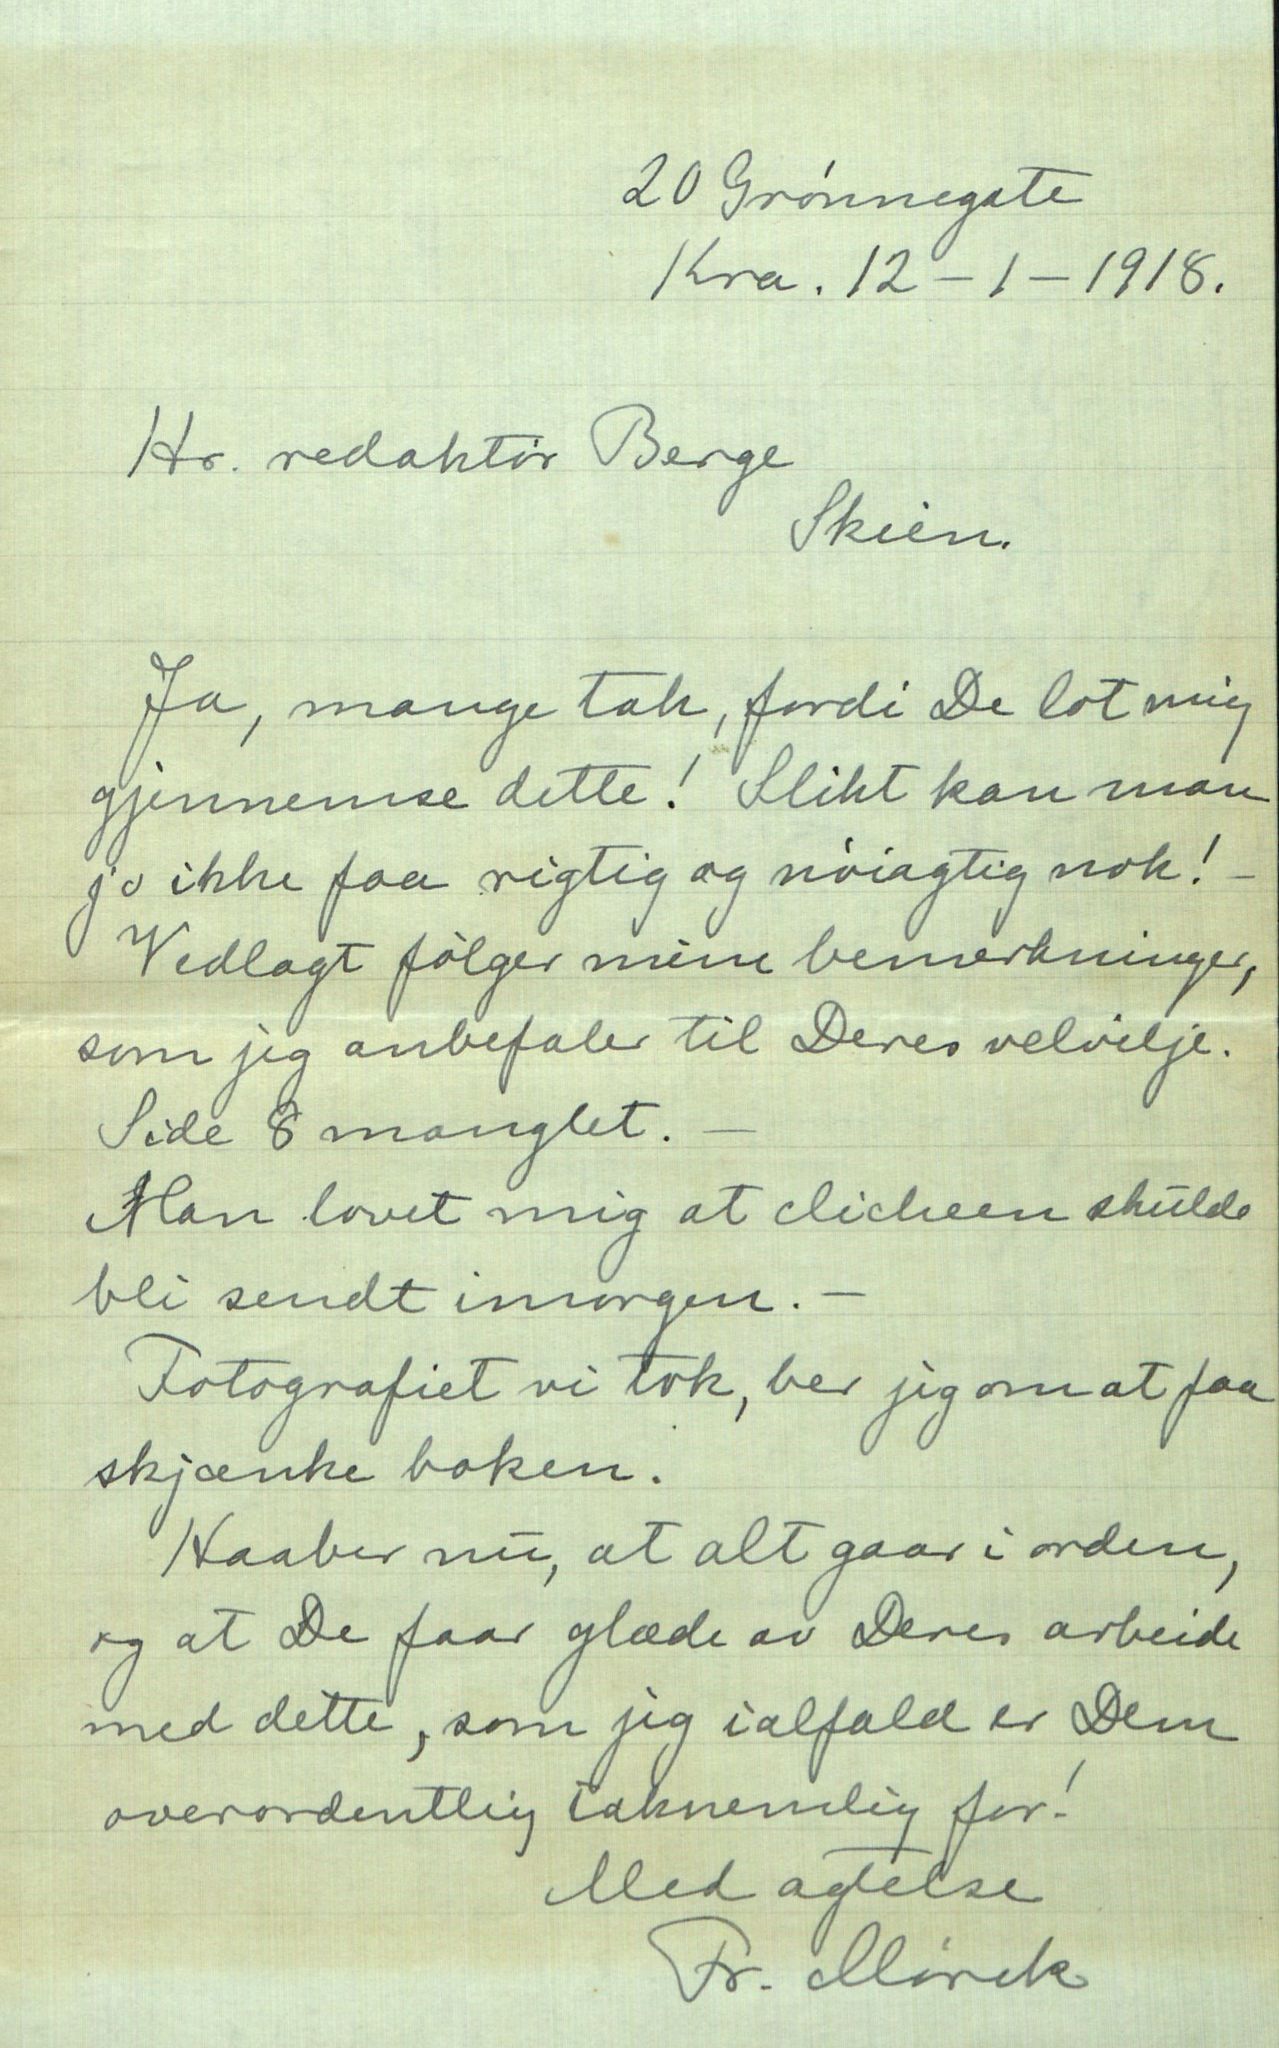 20 Grónnegate
Kra. 12 – 1 – 1918.
Hr. redaktór Berge
Skien.
Ja, mange tak, fordi De lot mig
gjennemse dette! Slikt kan man
jo ikke faa rigtig og nóiagtig nok! –
Vedlagt fólger mine bemerkninger,
som jeg anbefaler til Deres velvilje.
Side 8 manglet. –
Man lovet mig at clicheen skulde
bli sendt imorgen. –
Fotografiet vi tok, ber jeg om at faa
skjænke boken.
Haaber nu, at alt gaar i orden,
og at De faar glæde av Deres arbeide
med dette, som jeg ialfald er Dem
overordentlig taknemlig for!
Med agtelse
Fr. Mórck